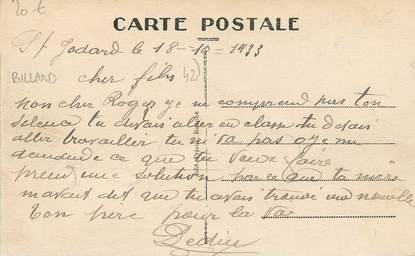 20 €
CARTE POSTALE
St Jodard le 18-10-1933
BILLARD
cher fils
(42)
mon cher Roger je ne comprend pas ton
silence tu devais aller en classe tu devais
aller travailler tu n'a pas je me
demande ce que tu veux faire
prend une solution parce que ta mère
m'avait dit que tu avais trouvé une nouvelle
ton père pour la vie